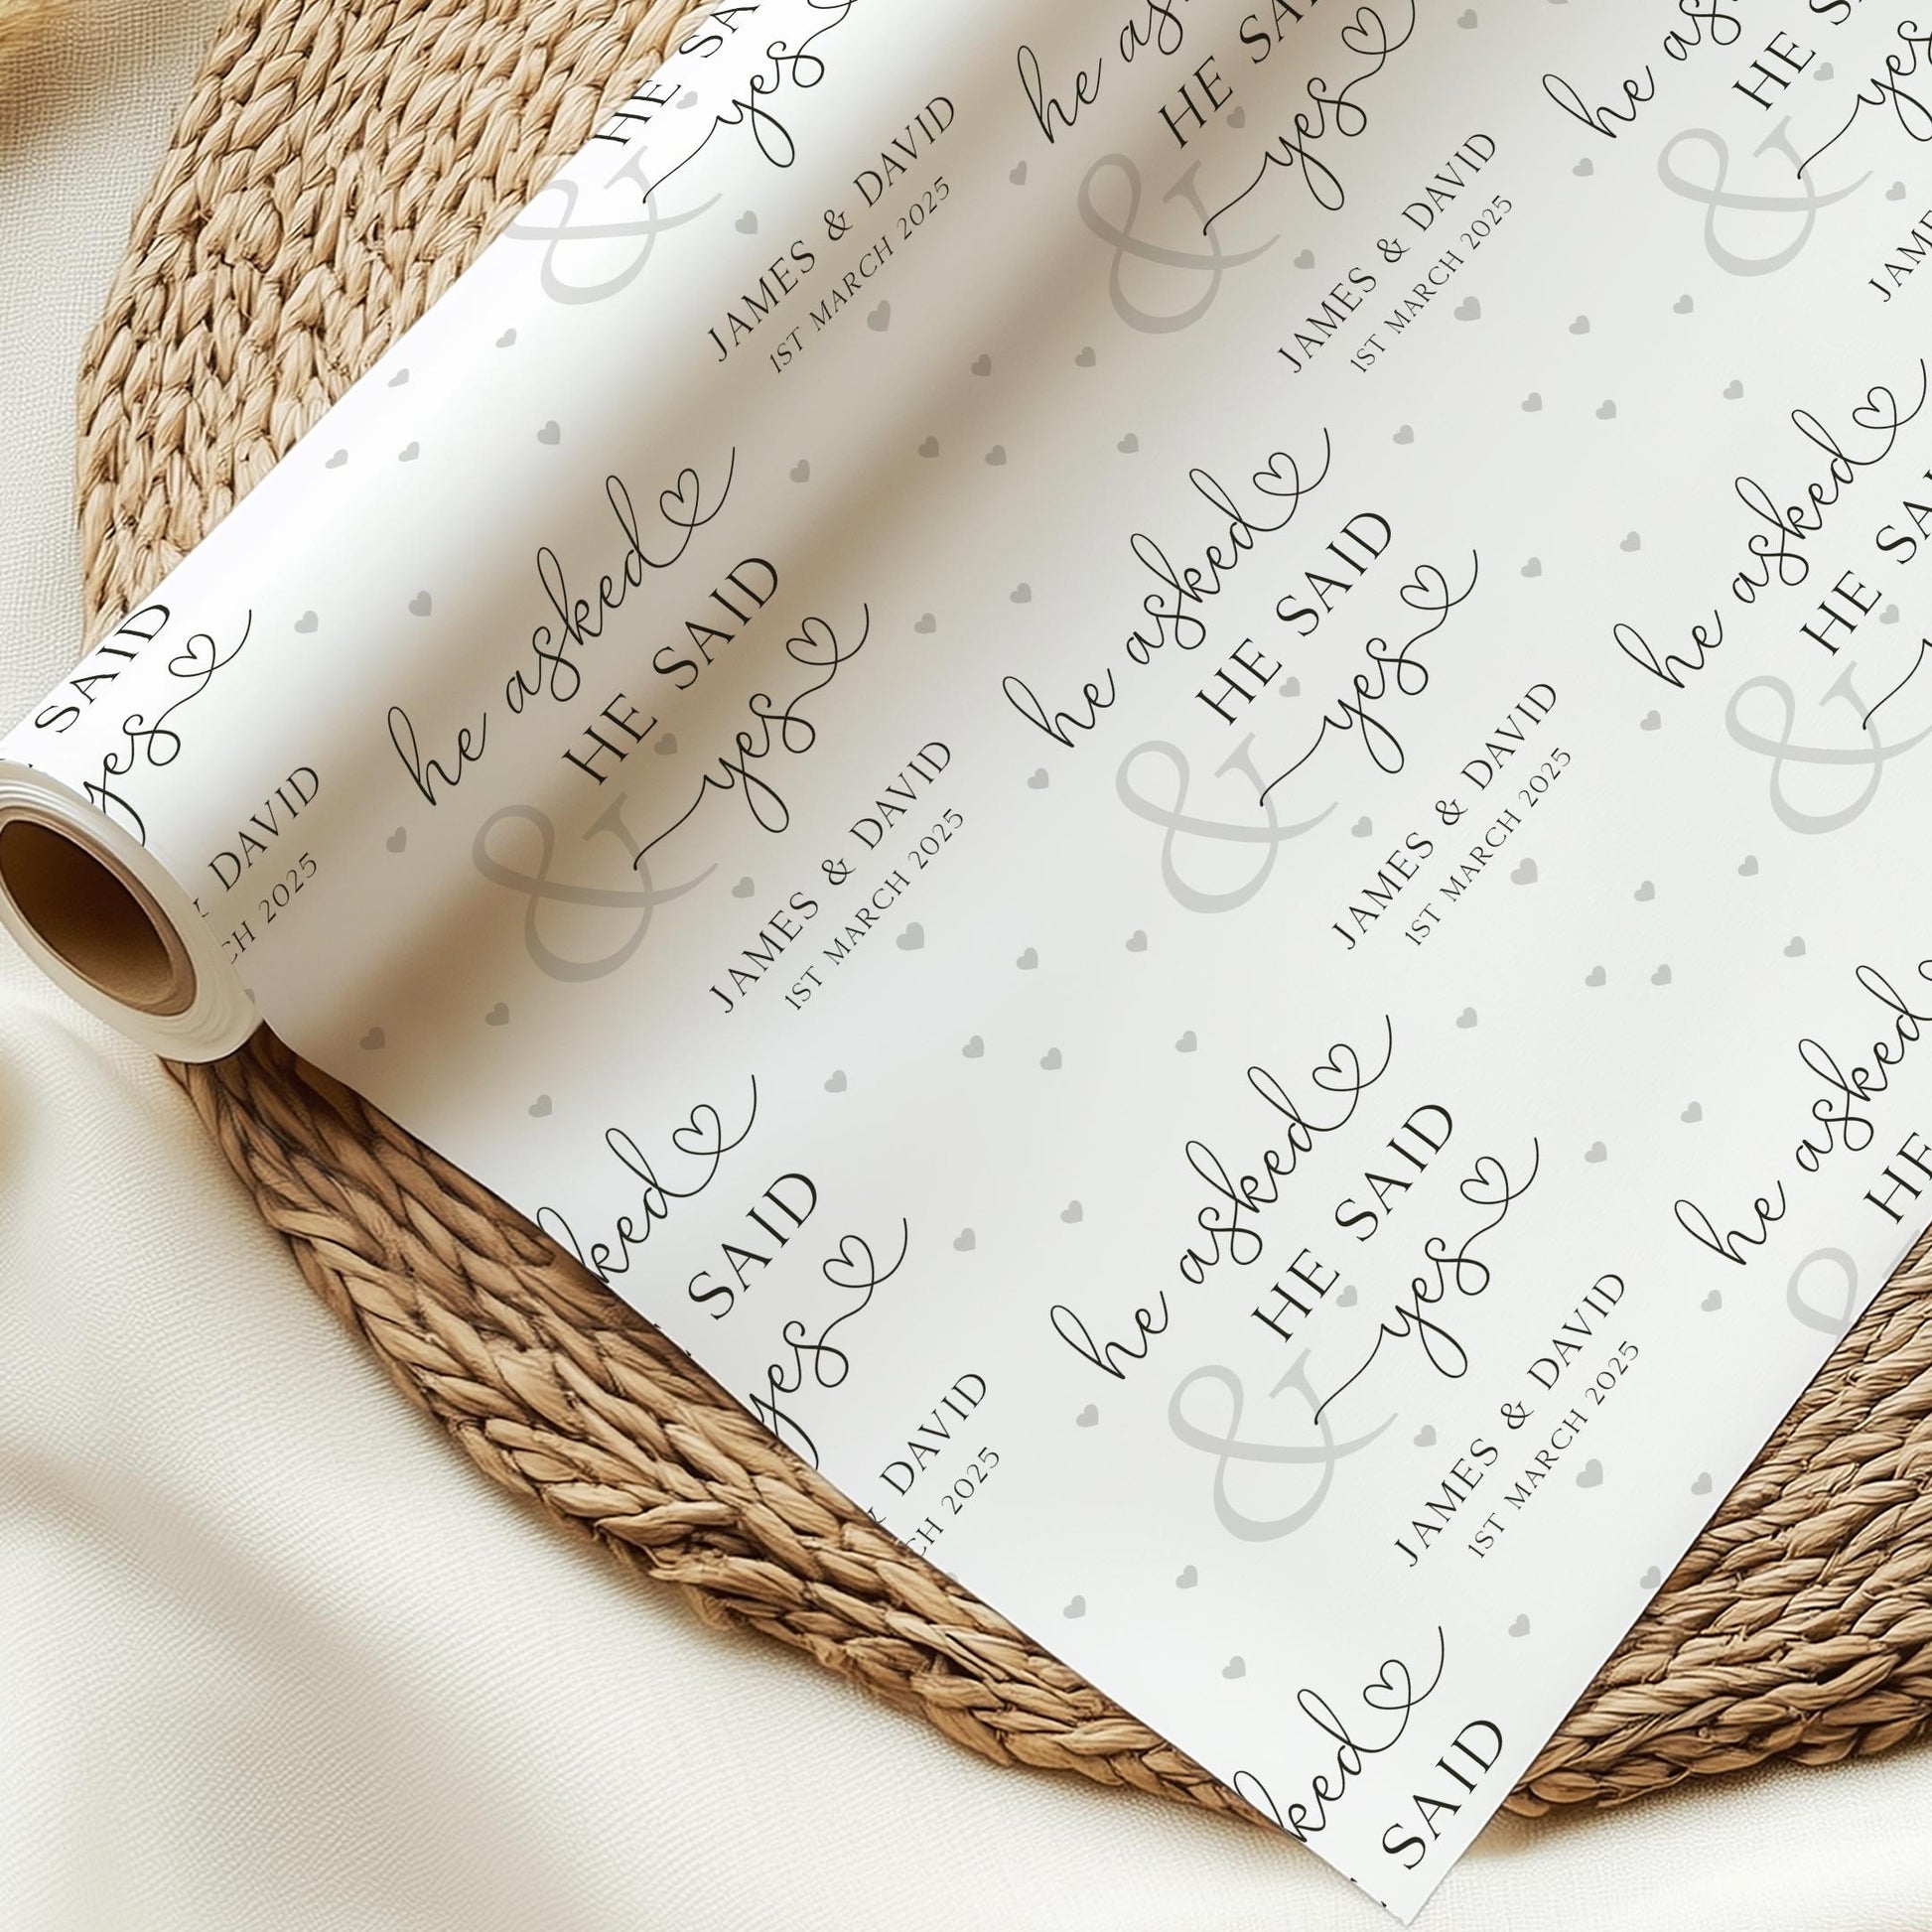 HE SA
& yes
JAMES & DAVID
1ST MARCH 2025
he as
HE SA
& yes
JAMES & DAVID
1ST MARCH 2025
he as
HE S
& yes
JAME
SAID
yes
DAVID
CH 2025
he asked
HE SAID
& yes
JAMES & DAVID
1ST MARCH 2025
he asked
HE SAID
& yes
JAMES & DAVID
1ST MARCH 2025
he asked
HE SA
&
ked
SAID
yes
& DAVID
CH 2025
he asked
HE SAID
& yes
JAMES & DAVID
1ST MARCH 2025
he asked
HE
ked
SAID